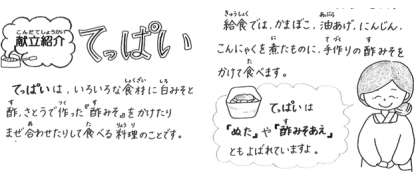 献立紹介
てっぱい
てっぱいは、いろいろな食材に白みそと
酢、さとうで作った『酢みそ』をかけたり
まぜ合わせたりして食べる料理のことです。
給食では、かまぼこ、油あげ、にんじん、
こんにゃくを煮たものに、手作りの酢みそを
かけて食べます。
てっぱいは
『ぬた』や『酢みそあえ』
ともよばれていますよ。